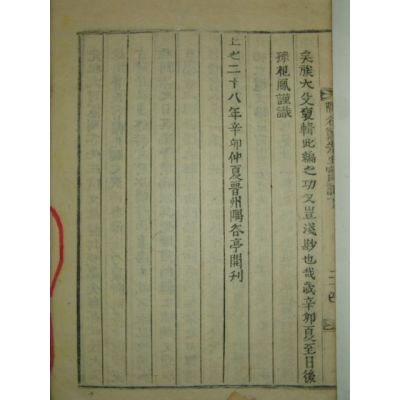 矣族大夫裒輯此編之功又豈淺尠也哉歲辛卯夏至日後
孫相鳳謹識
上之二十八年辛卯仲夏晉州隅谷亭開刊